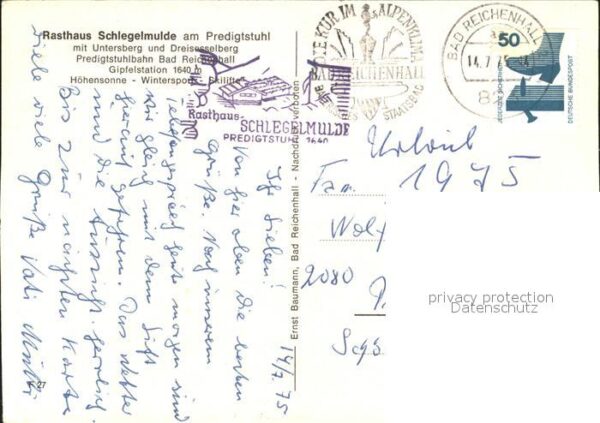 Rasthaus Schlegelmulde am Predigtstuhl
mit Untersberg und Dreisesselberg
Predigtstuhlbahn Bad Reichenhall
Gipfelstation 1640 m
Höhensonne - Wintersport - Skilifte
Rasthaus
SCHLEGELMULDE
PREDIGTSTUHL 1640
DIE KUR IM ALPENKLIMA
BAD REICHENHALL
STAATSBAD
BAD REICHENHALL
14.7.75
8
50
JEDERZEIT SICHERHEIT
DEUTSCHE BUNDESPOST
Ernst Baumann, Bad Reichenhall - Nachdruck verboten
14/7.75
Ihr Lieben!
Von hier oben die besten
Grüße. Nach unserem
Telefongespräch heute morgen sind
wir gleich mit dem Lift
herauf gefahren. Das Wetter
und die Aussicht herrlich.
Bis zur nächsten Karte
viele Grüße Vati Mutti
Viele
27
Urlaub
1975
Fam.
Wol
2080
privacy protection
Datenschutz